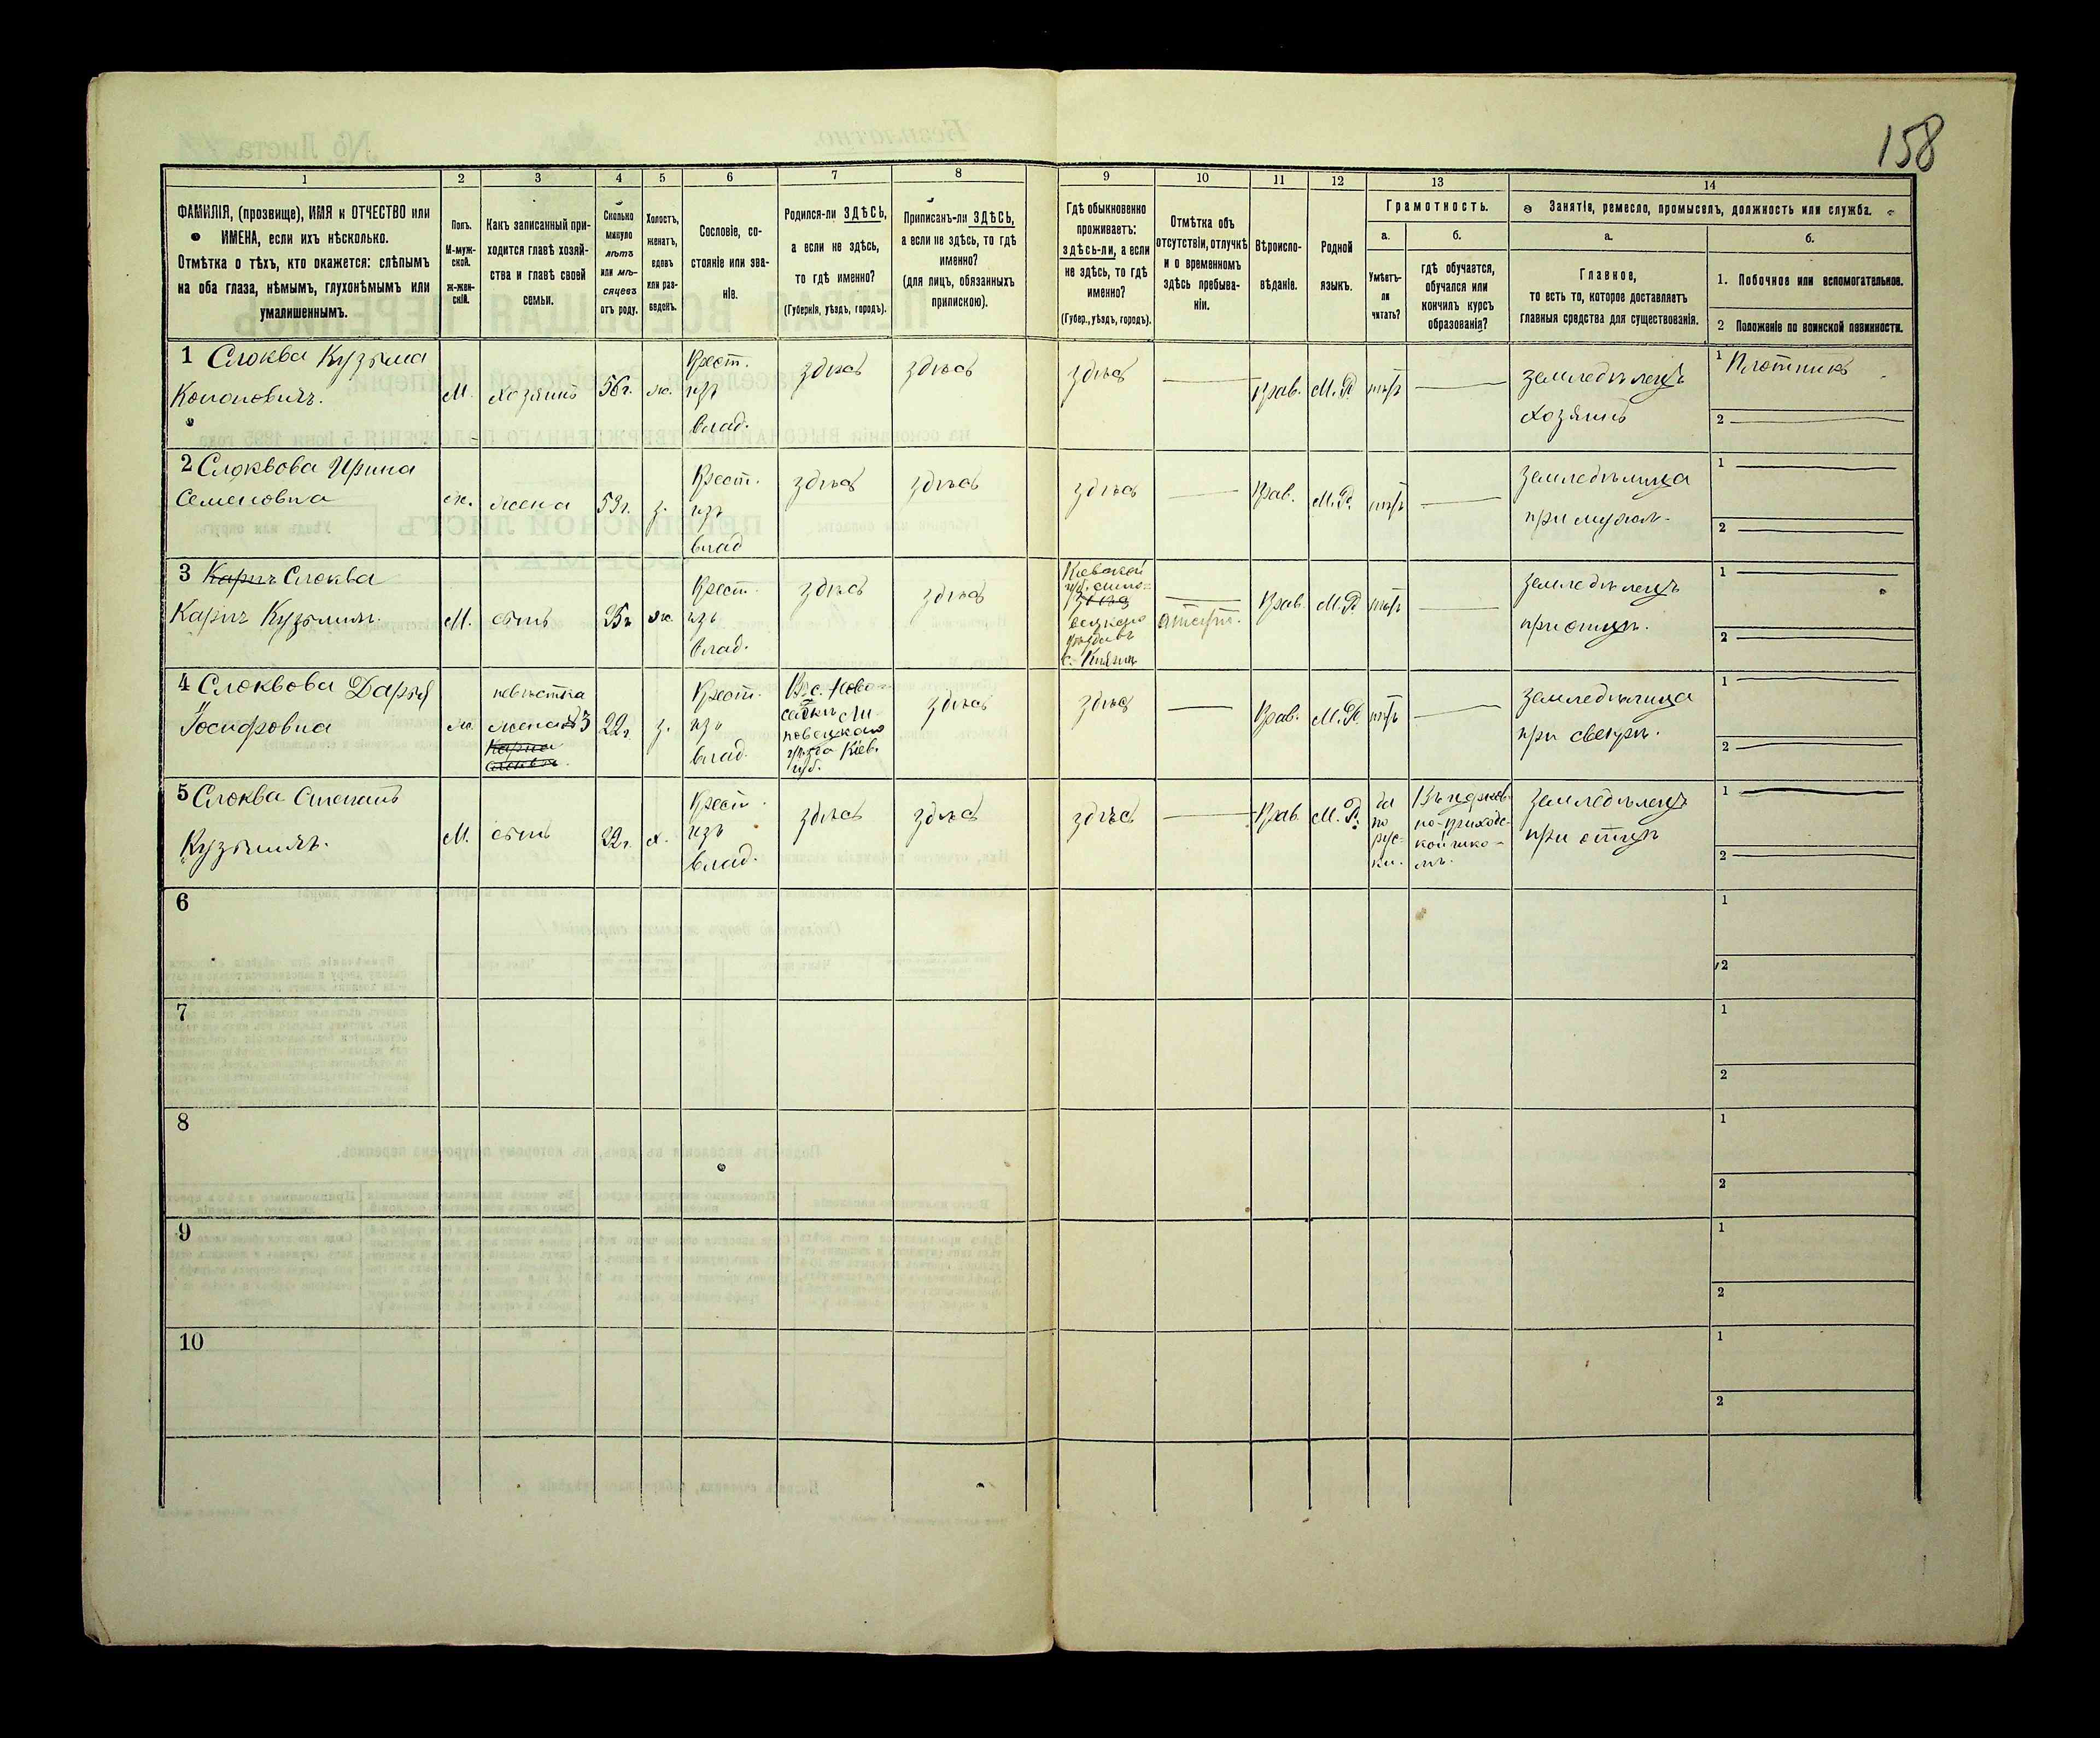 158
1
2
3
4
5
6
7
8
9
10
11
12
13
14
ФАМИЛІЯ, (прозвище), ИМЯ и ОТЧЕСТВО или
ИМЕНА, если ихъ нѣсколько.
Отмѣтка о тѣхъ, кто окажется: слѣпымъ
на оба глаза, нѣмымъ, глухонѣмымъ или
умалишеннымъ.
Полъ.
М-муж-
ской.
ж-жен-
скій.
Какъ записанный при-
ходится главѣ хозяй-
ства и главѣ своей
семьи.
Сколько
минуло
лѣтъ
или мѣ-
сяцевъ
отъ роду.
Холостъ,
женатъ,
вдовъ
или раз-
веденъ.
Сословіе, со-
стояніе или зва-
ніе.
Родился-ли ЗДѢСЬ,
а если не здѣсь,
то гдѣ именно?
(Губернія, уѣздъ, городъ).
Приписанъ-ли ЗДѢСЬ,
а если не здѣсь, то гдѣ
именно?
(для лицъ, обязанныхъ
припискою).
Гдѣ обыкновенно
проживаетъ:
здѣсь-ли, а если
не здѣсь, то гдѣ
именно?
(Губер., уѣздъ, городъ).
Отмѣтка объ
отсутствіи, отлучкѣ
и о временномъ
здѣсь пребыва-
ніи.
Вѣроиспо-
вѣданіе.
Родной
языкъ.
Грамотность.
а.
Умѣетъ-
ли
читать?
б.
гдѣ обучается,
обучался или
кончилъ курсъ
образованія?
Занятія, ремесло, промыселъ, должность или служба.
а.
Главное,
то есть то, которое доставляетъ
главныя средства для существованія.
б.
1. Побочное или вспомогательное.
2 Положеніе по воинской повинности.
1 Слоква Кузьма
Кононовичъ.
М.
хозяинъ
56 г.
ж.
Крест.
изъ
влад.
здѣсь
здѣсь
здѣсь
Прав.
М. Р.
нѣтъ
земледѣлецъ
хозяинъ
1 Плотникъ
2
2 Слоквова Ирина
Семеновна
ж.
жена
53 г.
з.
Крест.
изъ
влад
здѣсь
здѣсь
здѣсь
Прав.
М. Р.
нѣтъ
земледѣлица
при муж.
1
2
3 Карпъ Слоква
Карпъ Кузьмичъ.
М.
сынъ
25 г.
ж.
Крест.
изъ
влад.
здѣсь
здѣсь
Кіевской
губ.
здѣсь
Прав.
М. Р.
нѣтъ
земледѣлецъ
при отцѣ.
1
2
4 Слоквова Дарья
Іосифовна
ж.
невѣстка
жена 3
Карпа
22 г.
з.
Крест.
изъ
влад.
Въ с. Ново-
Ли-
повецкаго
уѣзда Кіев.
губ.
здѣсь
здѣсь
Прав.
М. Р.
нѣтъ
земледѣлица
при свекрѣ.
1
2
5 Слоква Степанъ
Кузьмичъ.
М.
сынъ
22 г.
х.
Крест.
изъ
влад.
здѣсь
здѣсь
здѣсь
Прав.
М. Р.
да
по
рус-
ки.
Въ церков-
но-приходс-
кой шко-
лѣ.
земледѣлецъ
при отцѣ
1
2
6
1
2
7
1
2
8
1
2
9
1
2
10
1
2